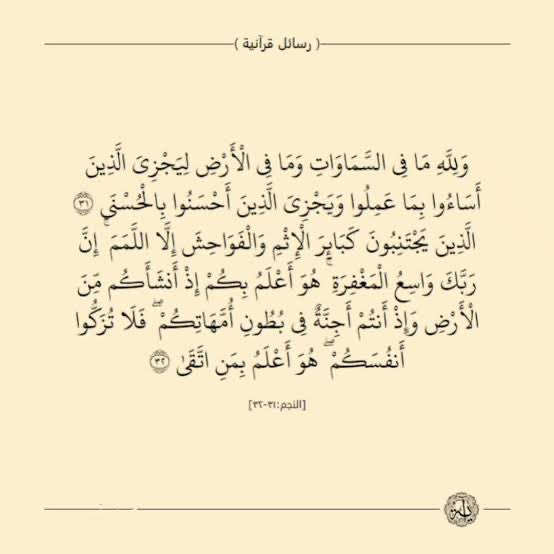 ( رسائل قرآنية )
وَلِلَّهِ مَا فِى السَّمَاوَاتِ وَمَا فِى الْأَرْضِ لِيَجْزِىَ الَّذِينَ
أَسَاءُوا بِمَا عَمِلُوا وَيَجْزِىَ الَّذِينَ أَحْسَنُوا بِالْحُسْنَى ٣١
الَّذِينَ يَجْتَنِبُونَ كَبَائِرَ الْإِثْمِ وَالْفَوَاحِشَ إِلَّا اللَّمَمَ ۚ إِنَّ
رَبَّكَ وَاسِعُ الْمَغْفِرَةِ ۚ هُوَ أَعْلَمُ بِكُمْ إِذْ أَنشَأَكُم مِّنَ
الْأَرْضِ وَإِذْ أَنتُمْ أَجِنَّةٌ فِى بُطُونِ أُمَّهَاتِكُمْ ۖ فَلَا تُزَكُّوا
أَنفُسَكُمْ ۖ هُوَ أَعْلَمُ بِمَنِ اتَّقَىٰ ٣٢
[النجم:٣١-٣٢]